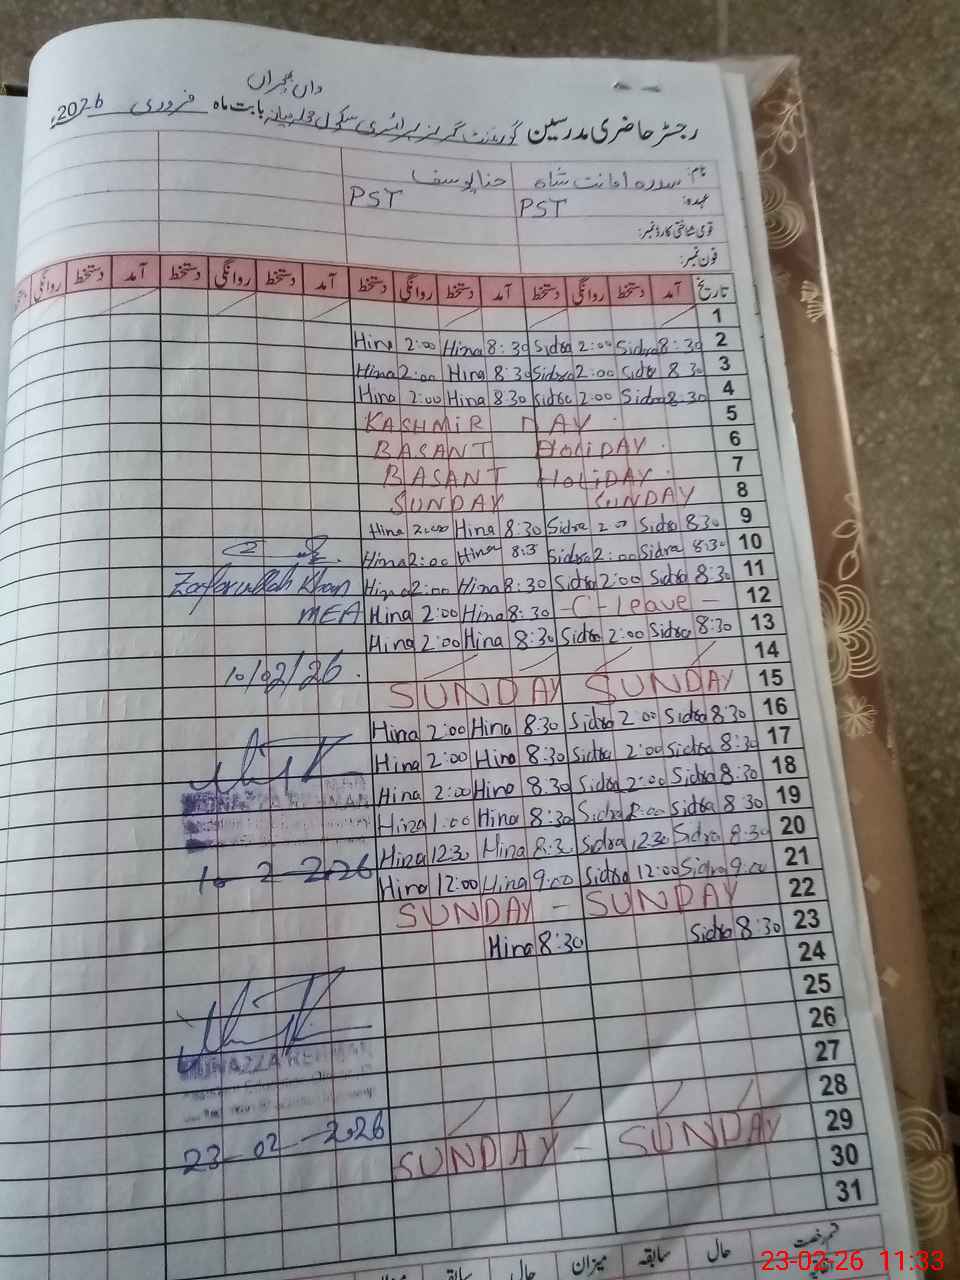 واں بھچراں
رجسٹر حاضری مدرسین گورنمنٹ گرلز پرائمری سکول بابت ماہ فروری 2026ء
نام: سدرہ امانت شاہ حنا یوسف
عہدہ: PST PST
قومی شناختی کارڈ نمبر:
فون نمبر:
تاریخ آمد دستخط روانگی دستخط آمد دستخط روانگی دستخط آمد دستخط روانگی دستخط آمد دستخط روانگی
1
Hina 2:00 Hina 8:30 Sidra 2:00 Sidra 8:30 2
Hina 2:00 Hina 8:30 Sidra 2:00 Sidra 8:30 3
Hina 2:00 Hina 8:30 Sidra 2:00 Sidra 8:30 4
KASHMIR DAY 5
BASANT HOLIDAY 6
BASANT HOLIDAY 7
SUNDAY SUNDAY 8
Hina 2:00 Hina 8:30 Sidra 2:00 Sidra 8:30 9
Hina 2:00 Hina 8:3 Sidra 2:00 Sidra 8:30 10
Zafarullah Khan Hina 2:00 Hina 8:30 Sidra 2:00 Sidra 8:30 11
MEA Hina 2:00 Hina 8:30 -C-leave- 12
Hina 2:00 Hina 8:30 Sidra 2:00 Sidra 8:30 13
10/02/26 14
SUNDAY SUNDAY 15
Hina 2:00 Hina 8:30 Sidra 2:00 Sidra 8:30 16
Hina 2:00 Hina 8:30 Sidra 2:00 Sidra 8:30 17
Hina 2:00 Hina 8:30 Sidra 2:00 Sidra 8:30 18
REHMAN Hina 1:00 Hina 8:30 Sidra 8:30 19
Hina 12:30 Hina 8:30 Sidra 12:30 Sidra 8:30 20
10-2-2026 Hina 12:00 Hina 9:00 Sidra 12:00 Sidra 9:00 21
SUNDAY - SUNDAY 22
Hina 8:30 Sidra 8:30 23
24
25
26
MUNAZZA REHMAN 27
28
23-02-2026 29
SUNDAY - SUNDAY 30
31
قسم رخصت حال سابقہ میزان حال سابقہ
23-02-26 11:33